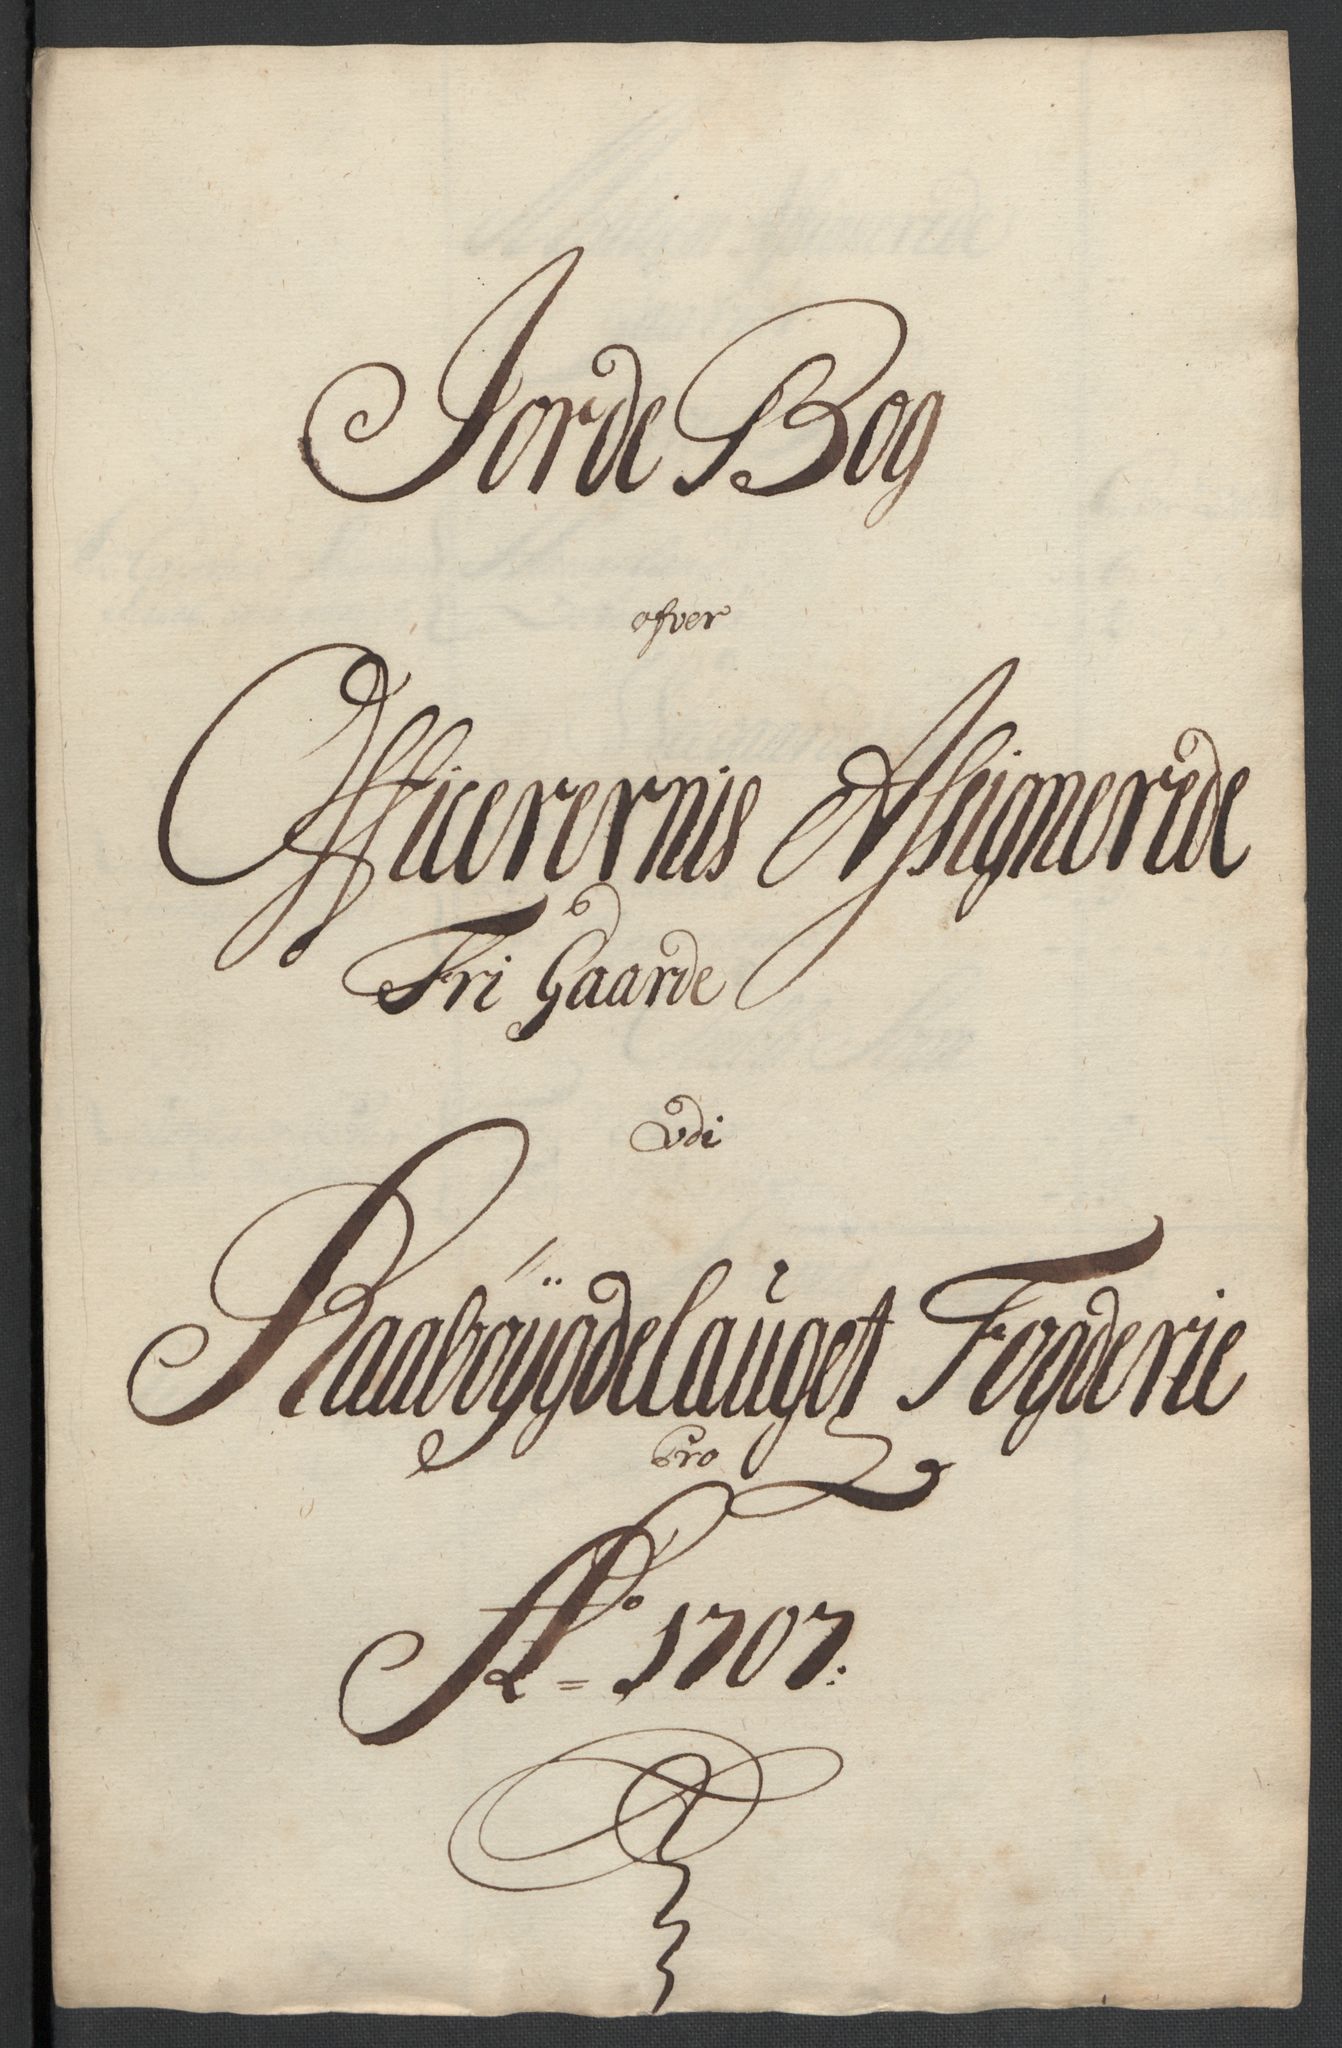 Jorde Bog
ofver
Officerernis Assignerede
Fri Gaarde
udi
Raabøÿgdelauget Fogderie
Pro
Ao = 1707: